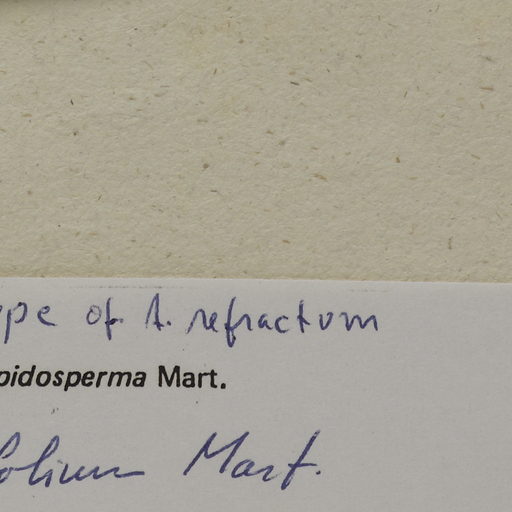 ype of A. refractum
pidosperma Mart.
folium Mart.